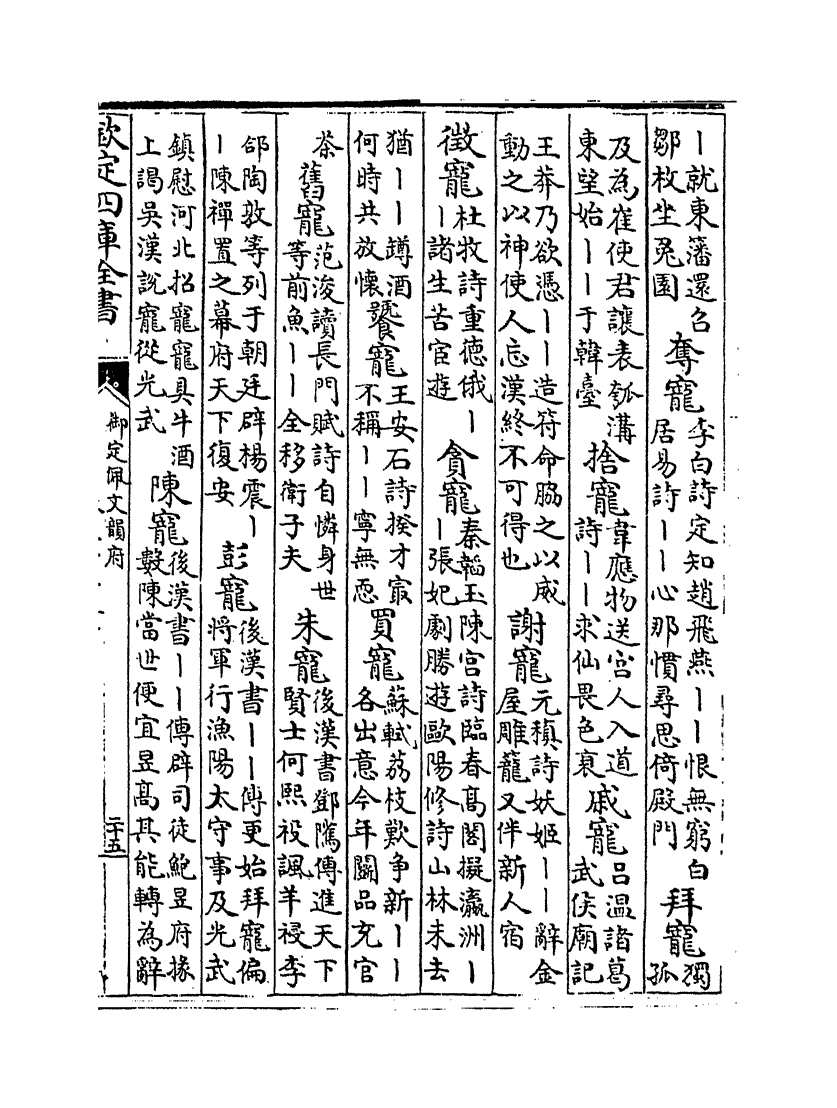 丨就東藩還召鄒枚坐兔園 奪寵 李白詩定知趙飛燕丨丨恨無窮白居易詩丨丨心那慣尋思倚殿門 拜寵 獨孤
及為崔使君讓表瓠溝東望始丨丨于韓臺 捨寵 韋應物送宮人入道詩丨丨求仙畏色衰 戚寵 吕温諸葛武侯廟記
王莽乃欲憑丨丨造符命脇之以威動之以神使人忘漢終不可得也 謝寵 元稹詩妖姬丨丨辭金屋雕籠又伴新人宿
徴寵 杜牧詩重德俄丨丨諸生苦宦遊 貪寵 秦韜玉陳宮詩臨春髙閣擬瀛洲丨丨張妃劇勝遊歐陽修詩山林未去
猶丨丨蹲酒何時共放懷 饕寵 王安石詩揆才㝡不稱丨丨寧無恧 買寵 蘇軾荔枝歎争新丨丨各出意今年鬭品充官
茶 舊寵 范浚讀長門賦詩自憐身世等前魚丨丨全移衛子夫 朱寵 後漢書鄧隲傳進天下賢士何熙祋諷羊祲李
郃陶敦等列于朝廷辟楊震丨丨陳禪置之幕府天下復安 彭寵 後漢書丨丨傳更始拜寵偏將軍行漁陽太守事及光武
鎮慰河北招寵寵具牛酒上謁吳漢說寵從光武 陳寵 後漢書丨丨傳辟司徒鮑昱府掾數陳當世便宜昱髙其能轉為辭
欽定四庫全書
御定佩文韻府
二十五